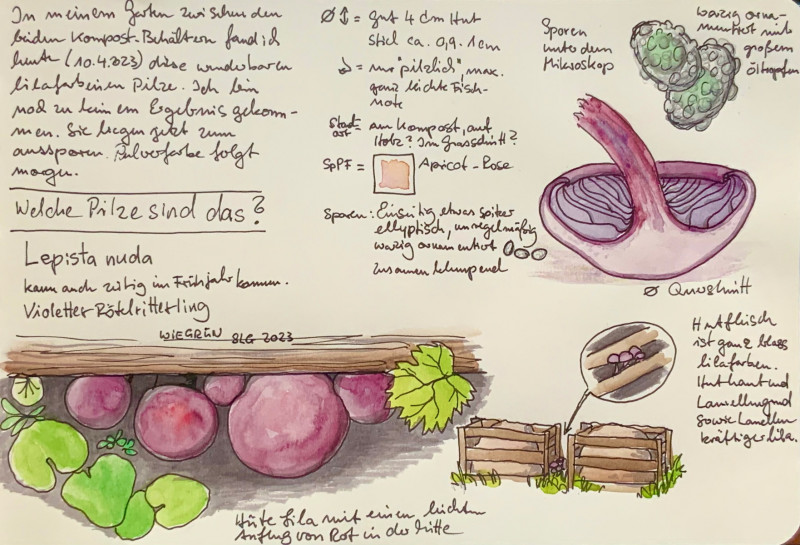 In meinem Garten zwischen den
beiden Kompost-Behältern fand ich
heute (10.4.023) diese wunderbaren
lilafarbenen Pilze. Ich bin
noch zu keinem Ergebnis gekom-
men. Sie liegen jetzt zum
aussporen. Pulverfarbe folgt
morgen.
Welche Pilze sind das?
Lepista nuda
kann auch zeitig im Frühjahr kommen.
Violetter Rötelritterling
WIEGRÜN SLG 2023
Ø ↕ = gut 4 cm Hut
Stiel ca. 0,9 - 1cm
= nur "pilzlich", max.
ganz leichte Fisch-
note
Stand-
ort = am Kompost, auf
Holz? Im Grasschnitt?
SpPF = Apricot-Rose
Sporen: Einseitig etwas spitzer
elliptisch, unregelmäßig
warzig ornamentiert
zusammenklumpend
Sporen
unter dem
Mikroskop
warzig orna-
mentiert mit
großem
Öltropfen
Ø Querschnitt
Hutfleisch
ist ganz blass
lilafarben.
Huthaut und
sowie Lamellen
kräftiger lila.
Hüte lila mit einem leichten
Anflug von Rot in der Mitte